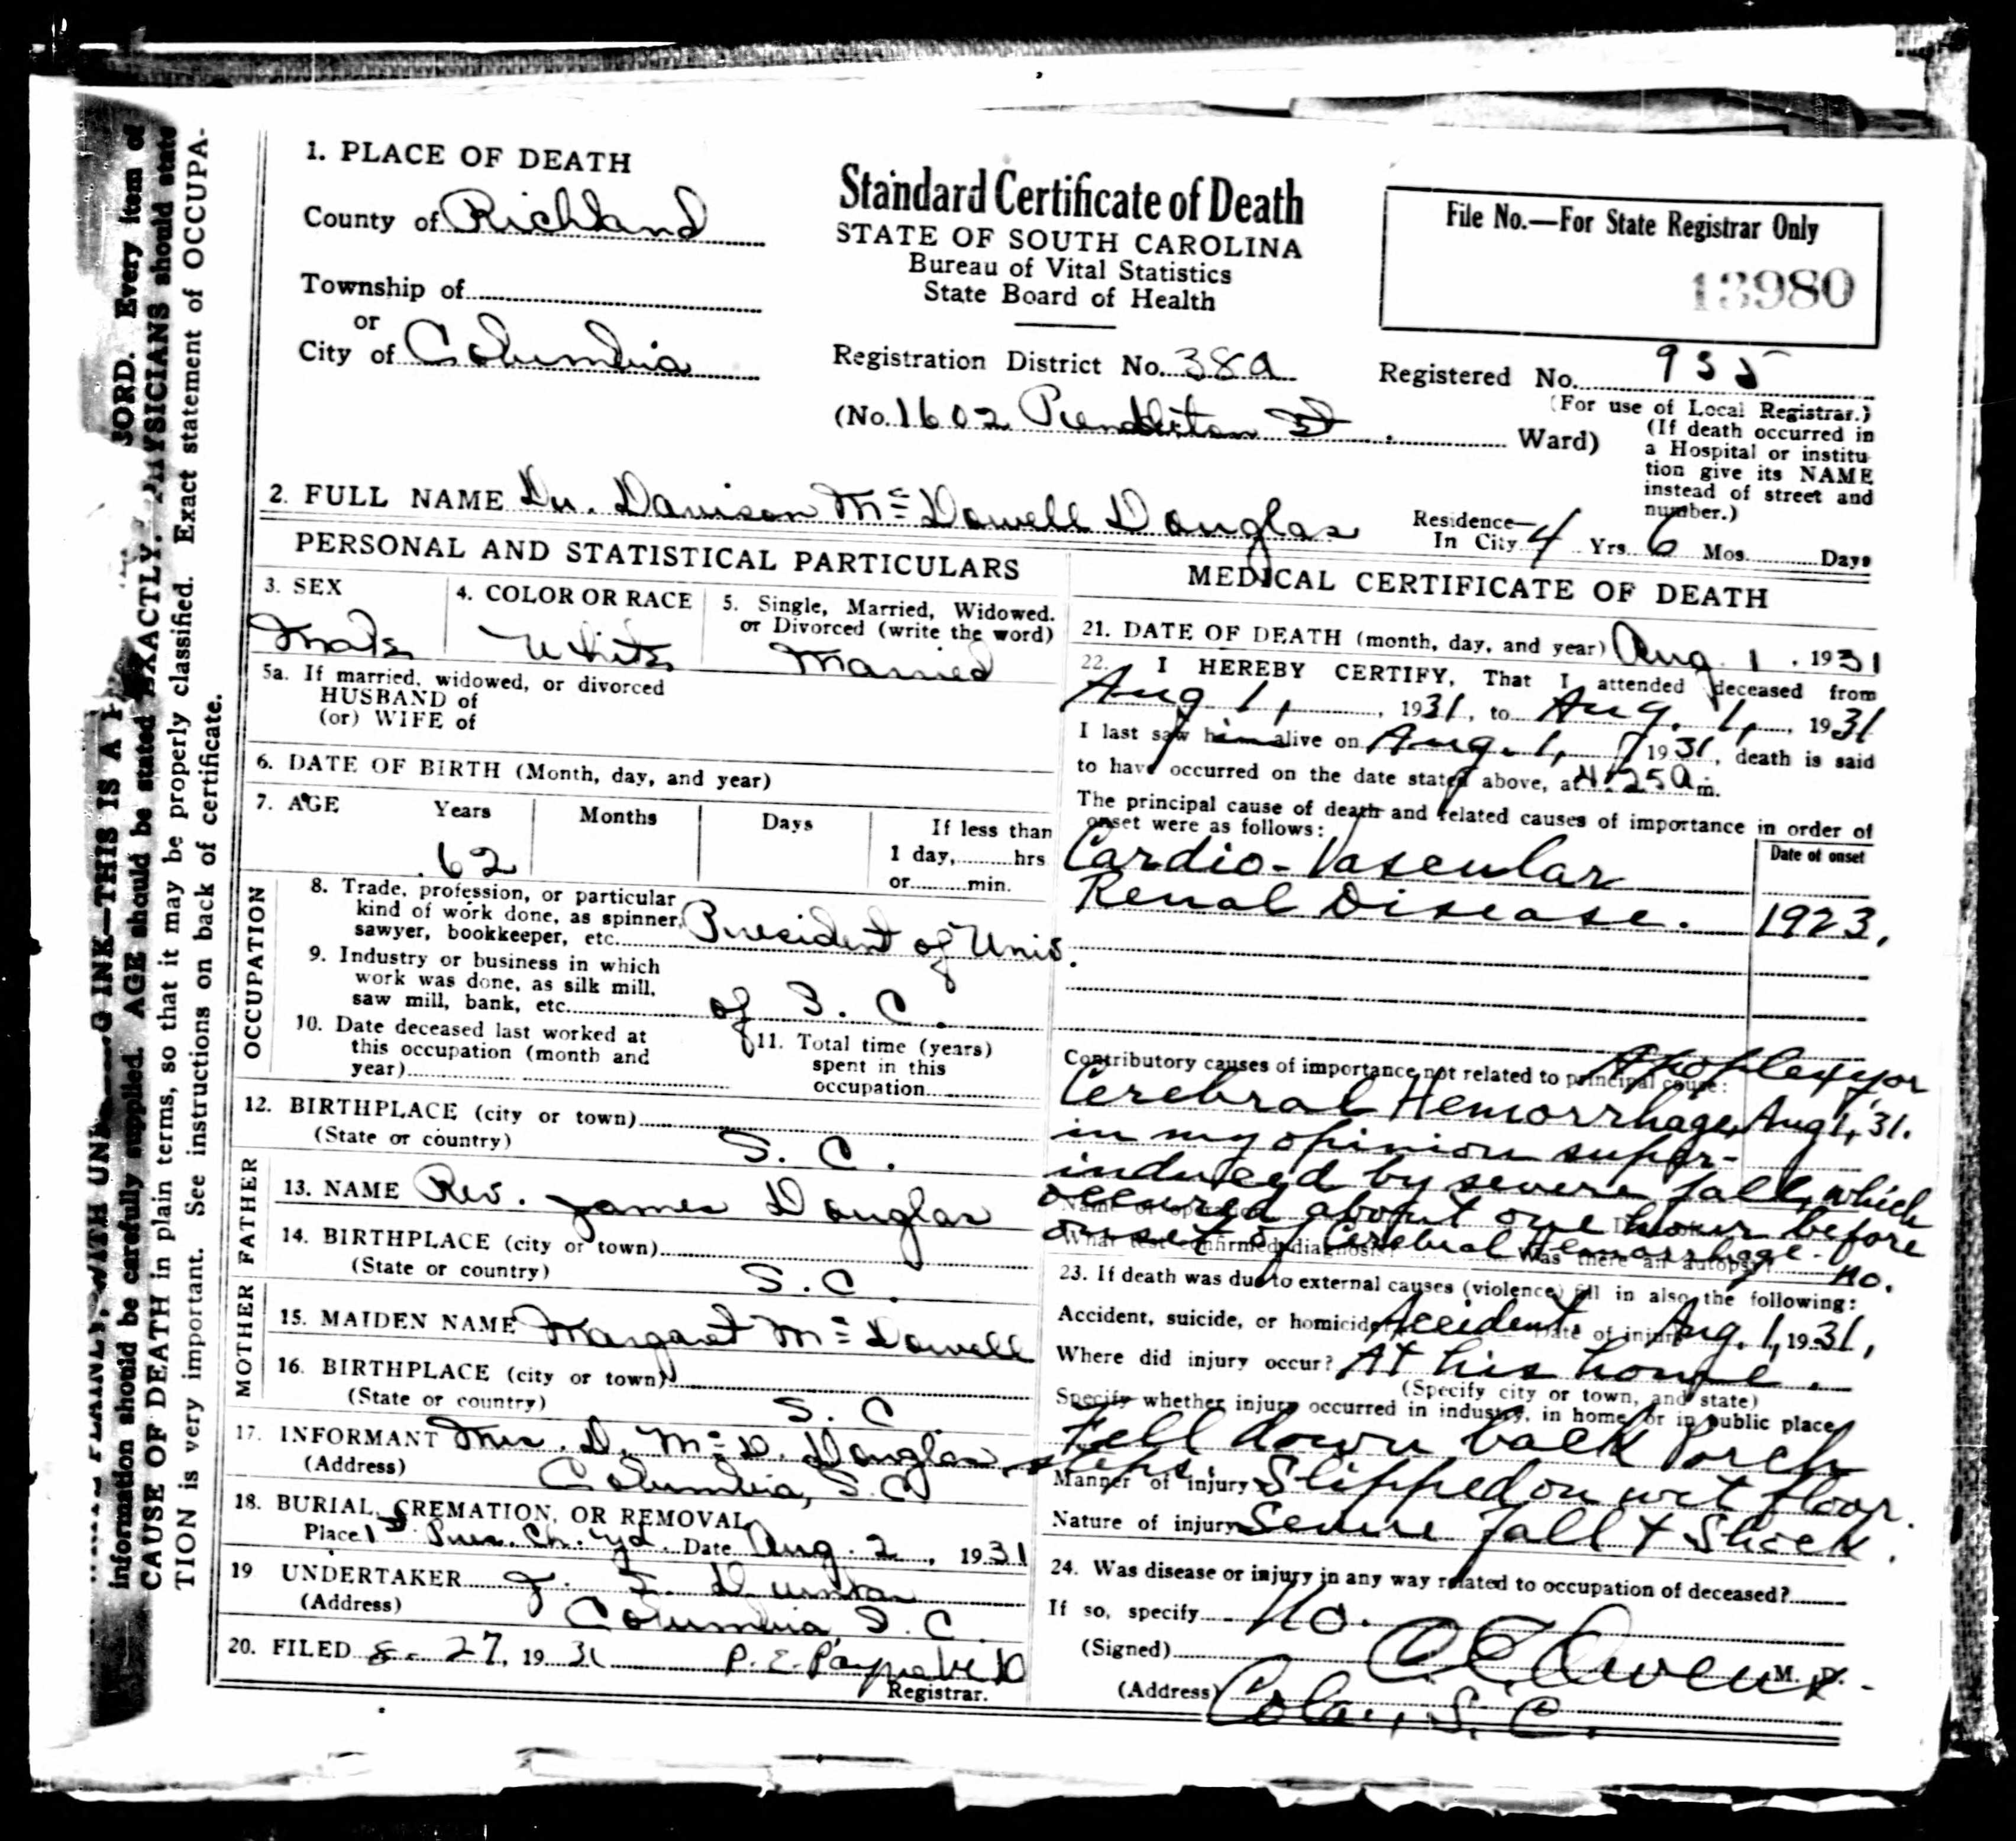 JORD. Every item of
information should be carefully supplied. AGE should be stated EXACTLY. PHYSICIANS should state
CAUSE OF DEATH in plain terms, so that it may be properly classified. Exact statement of OCCUPA-
TION is very important. See instructions on back of certificate.
1. PLACE OF DEATH
County of Richland
Township of
or
City of Columbia
Standard Certificate of Death
STATE OF SOUTH CAROLINA
Bureau of Vital Statistics
State Board of Health
File No.—For State Registrar Only
13980
Registration District No. 38a
Registered No. 935
(For use of Local Registrar.)
(No. 1602 Pendleton St. Ward)
(If death occurred in
a Hospital or institu
tion give its NAME
instead of street and
number.)
2. FULL NAME Dr. Davison Mc Dowell Douglas
Residence—
In City 4 Yrs. 6 Mos. Days
PERSONAL AND STATISTICAL PARTICULARS
3. SEX
Male
4. COLOR OR RACE
White
5. Single, Married, Widowed.
or Divorced (write the word)
Married
5a. If married, widowed, or divorced
HUSBAND of
(or) WIFE of
6. DATE OF BIRTH (Month, day, and year)
7. AGE Years Months Days If less than
62 1 day, hrs
or min.
OCCUPATION
8. Trade, profession, or particular
kind of work done, as spinner,
sawyer, bookkeeper, etc. President of Univ.
9. Industry or business in which
work was done, as silk mill,
saw mill, bank, etc. of S. C.
10. Date deceased last worked at
this occupation (month and
year)
11. Total time (years)
spent in this
occupation
12. BIRTHPLACE (city or town)
(State or country) S. C.
FATHER
13. NAME Rev. James Douglas
14. BIRTHPLACE (city or town)
(State or country) S.C.
MOTHER
15. MAIDEN NAME Margaret Mc Dowell
16. BIRTHPLACE (city or town)
(State or country) S. C
17. INFORMANT Mrs. D. Mc D. Douglas
(Address) Columbia, S.C
18. BURIAL, CREMATION, OR REMOVAL
Place 1st Pres. Ch. yd. Date Aug. 2, 1931
19 UNDERTAKER J. F. Dunbar
(Address) Columbia, S. C.
20. FILED 8-27, 1931 P. E. Payne
Registrar.
MEDICAL CERTIFICATE OF DEATH
21. DATE OF DEATH (month, day, and year) Aug. 1, 1931
22. I HEREBY CERTIFY, That I attended deceased from
Aug 1, 1931, to Aug. 1, 1931
I last saw him alive on Aug. 1, 1931, death is said
to have occurred on the date stated above, at 4:25 a m.
The principal cause of death and related causes of importance in order of
onset were as follows:
Date of onset
Cardio-Vascular
Renal Disease. 1923.
Contributory causes of importance not related to principal cause:
Apoplexy, or
Cerebral Hemorrhage, Aug 1, 31.
in my opinion super-
induced by severe fall, which
occured about one hour before
onset of Cerebral Hemorrhage.
Name of operation
What test confirmed diagnosis? Was there an autopsy? no.
23. If death was due to external causes (violence) fill in also the following:
Accident, suicide, or homicide Accident. Date of injury Aug. 1, 1931,
Where did injury occur? At his home.
(Specify city or town, and state)
Specify whether injury occurred in industry, in home, or in public place
Fell down back Porch
steps.
Manner of injury Slipped on wet floor.
Nature of injury Severe fall & Shock.
24. Was disease or injury in any way related to occupation of deceased?
If so, specify No.
(Signed) Owens M. D.
(Address) Cola., S. C.